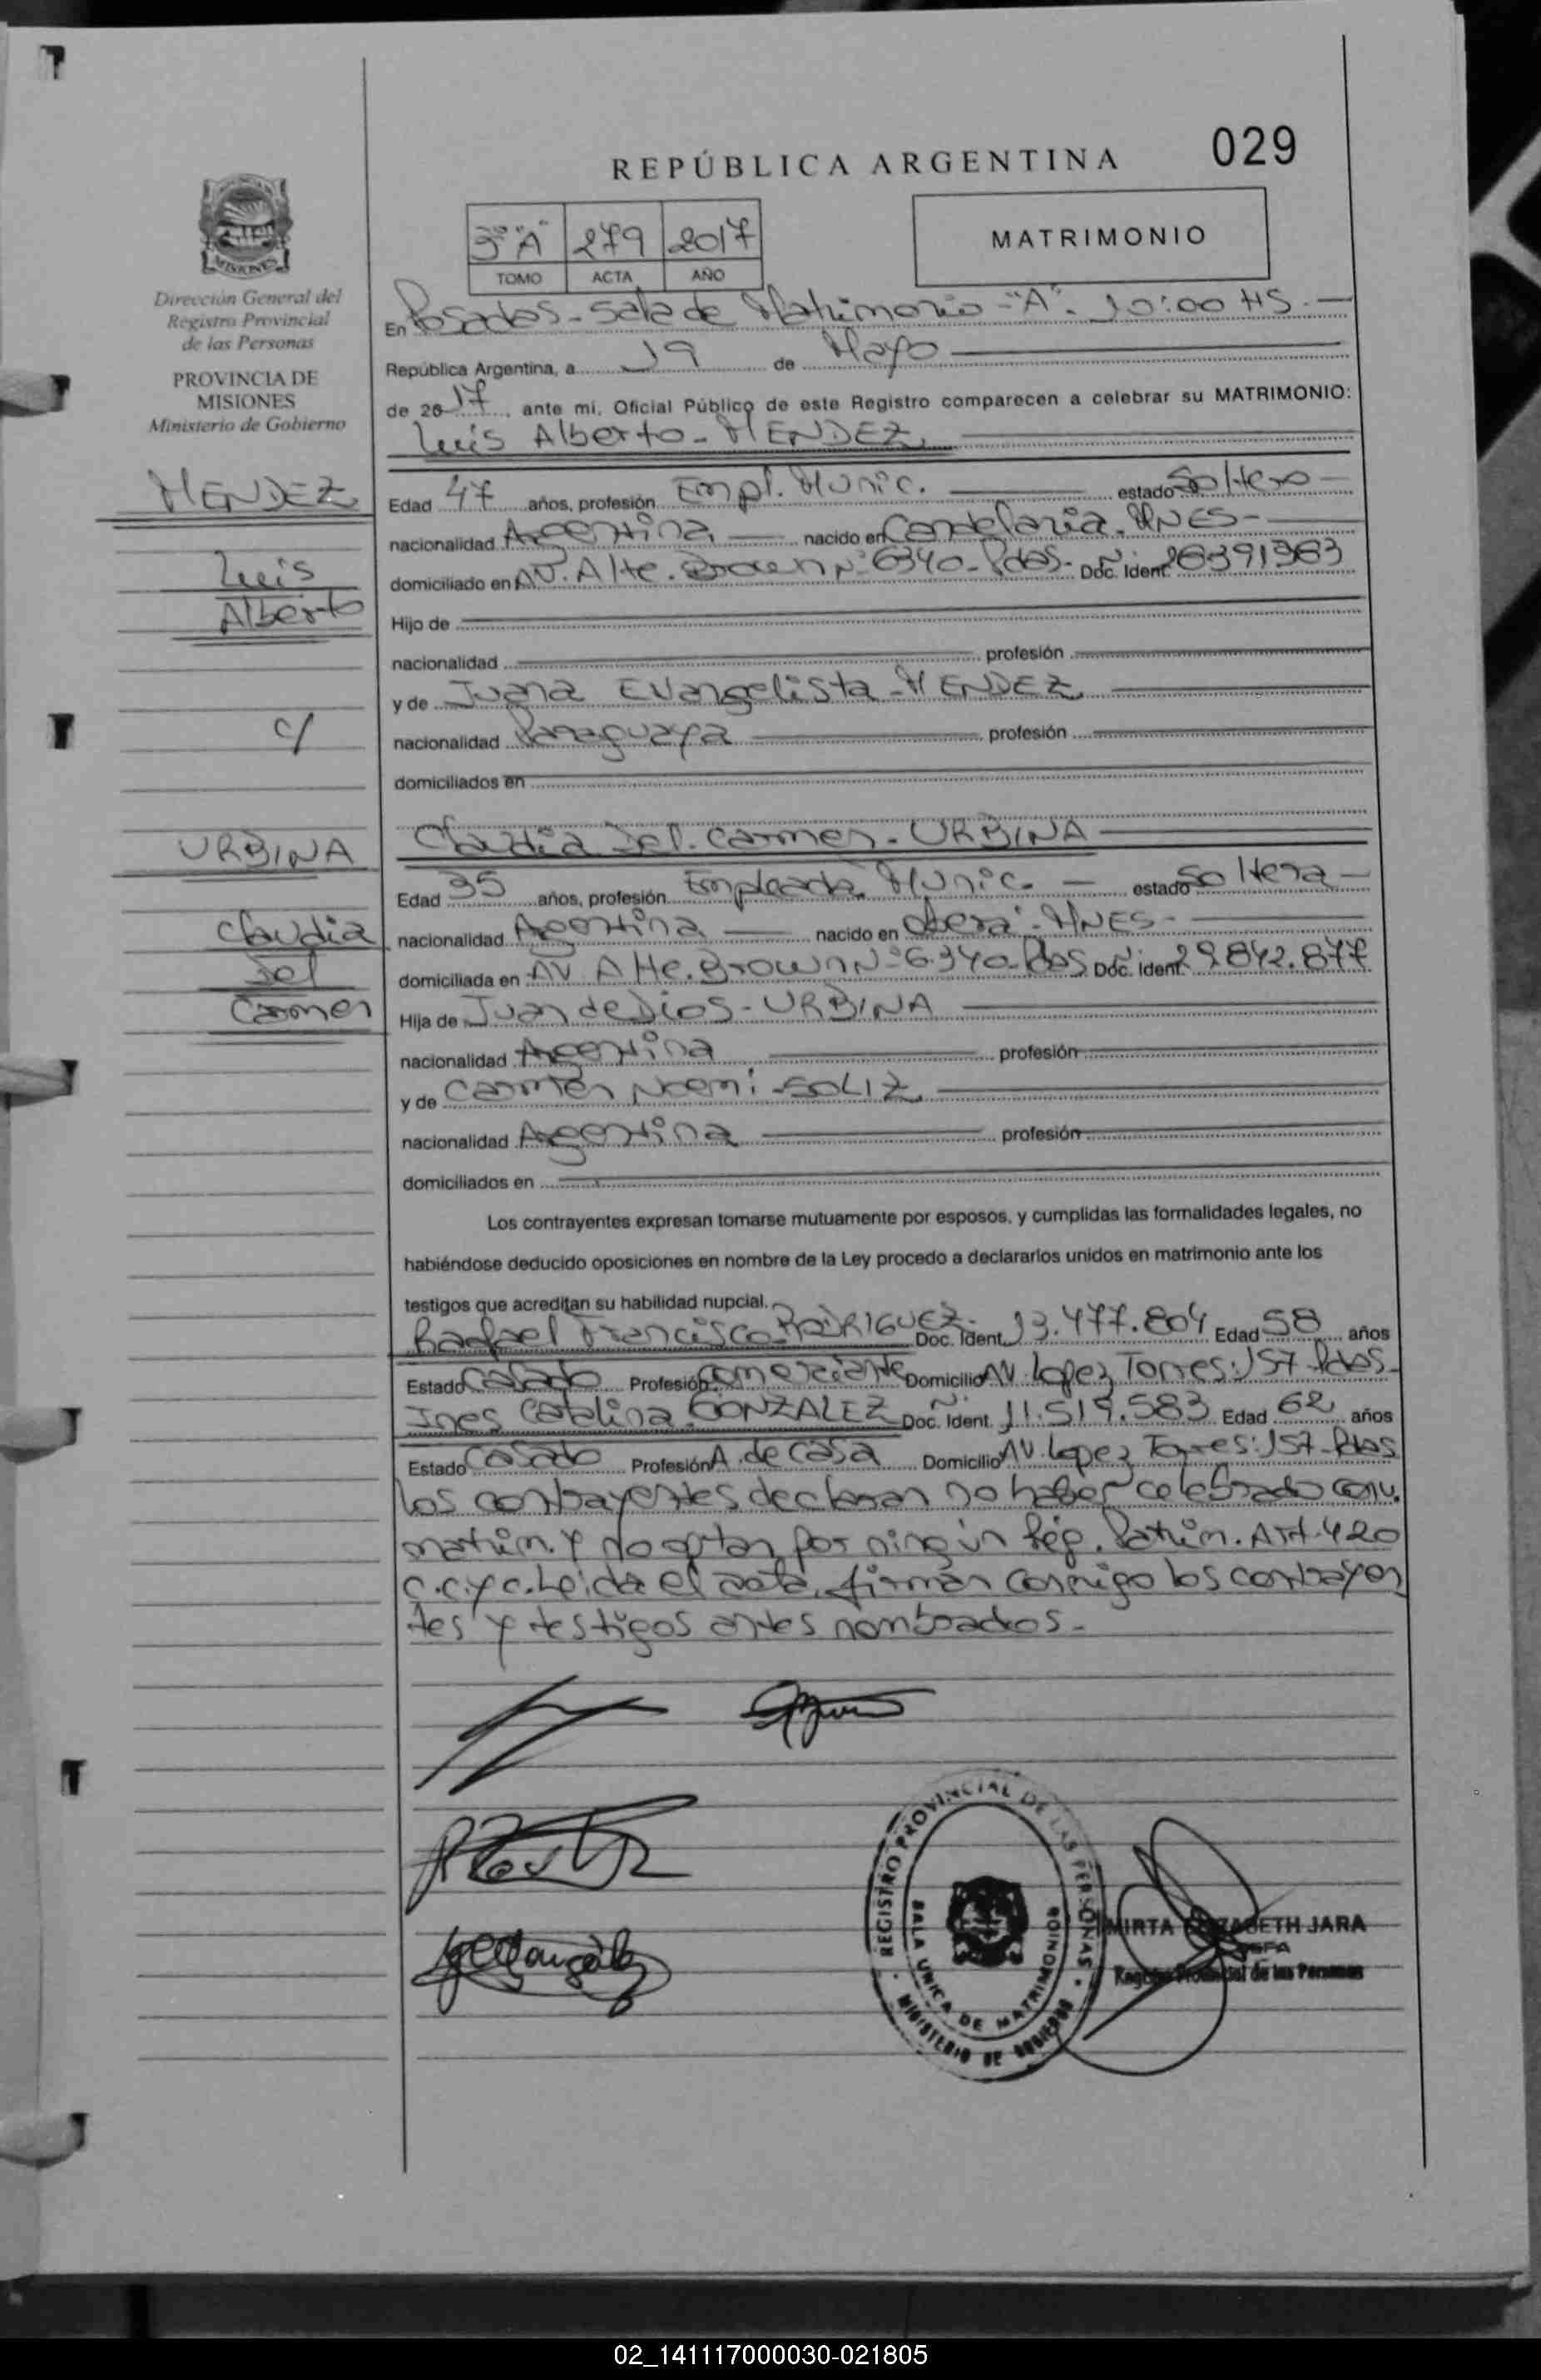 029
REPÚBLICA ARGENTINA
3° "A" 279 2017
TOMO ACTA AÑO
MATRIMONIO
MISIONES
Dirección General del
Registro Provincial
de las Personas
PROVINCIA DE
MISIONES
Ministerio de Gobierno
MENDEZ
Luis
Alberto
c/
URBINA
Claudia
Del
Carmen
En Posadas - Sala de Matrimonio - "A". 10:00 HS.
República Argentina, a 19 de Mayo
de 2017, ante mi, Oficial Público de este Registro comparecen a celebrar su MATRIMONIO:
Luis Alberto - MENDEZ
Edad 47 años, profesión Empl. Munic. estado Soltero
nacionalidad Argentina nacido en Candelaria. MNES-
domiciliado en AV. Alte. Brown N° 6340 - Pdas- Doc. Ident.
Hijo de
nacionalidad profesión
y de Juana Evangelista - MENDEZ
nacionalidad Paraguaya profesión
domiciliados en
Claudia Del. Carmen - URBINA
Edad 35 años, profesión Empleada Munic. estado Soltera
nacionalidad Argentina nacido en Oberá - MNES -
domiciliada en AV Alte. Brown N° 6340 - Pdas Doc. Ident. 29.842.877
Hija de Juan de Dios - URBINA
nacionalidad Argentina profesión
y de Carmen Noemi - SOLIZ
nacionalidad Argentina profesión
domiciliados en
Los contrayentes expresan tomarse mutuamente por esposos, y cumplidas las formalidades legales, no
habiéndose deducido oposiciones en nombre de la Ley procedo a declararlos unidos en matrimonio ante los
testigos que acreditan su habilidad nupcial.
Rafael Francisco RODRIGUEZ Doc. Ident. 13.477.804 Edad 58 años
Estado Casado Profesión Comerciante Domicilio AV. Lopez Torres: 157 - Pdas -
Ines Catalina GONZALEZ Doc. Ident. 11.519.583 Edad 62 años
Estado Casado Profesión A. de casa Domicilio AV. Lopez Torres: 157 - Pdas
los contrayentes declaran no haber celebrado conv.
matrim. y no optan por ningún Rég. Patrim. Art. 420
C.C.y C. Leída el acta, firman conmigo los contrayen
tes y testigos antes nombrados.-
REGISTRO PROVINCIAL DE LAS PERSONAS
SALA UNICA DE MATRIMONIOS
MINISTERIO DE GOBIERNO
MIRTA ELIZABETH JARA
JEFA
Registro Provincial de las Personas
02_141117000030-021805